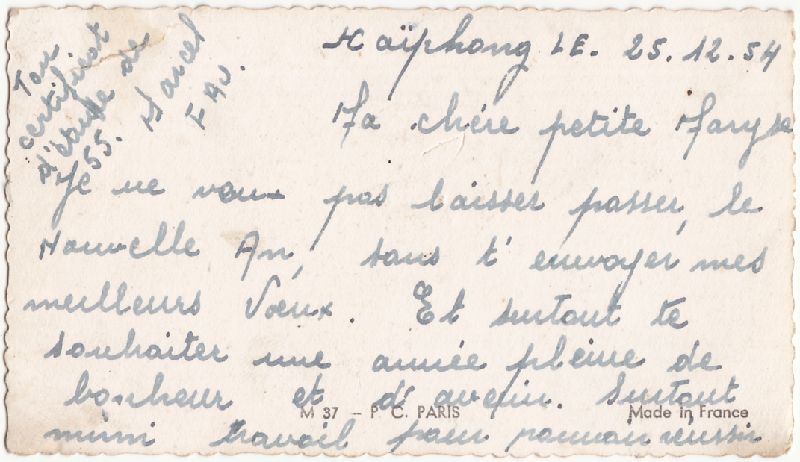 Haïphong LE. 25.12.54
Ma chère petite Maryse
Je ne veux pas laisser passer, le
Nouvelle An, sans t'envoyer mes
meilleurs Vœux. Et surtout te
souhaiter une année pleine de
bonheur et d'avenir. Surtout
mimi travail pour pouvoir réussir
Ton
certificat
d'étude de
55. Marcel
FAV.
M 37 – P. C. PARIS
Made in France